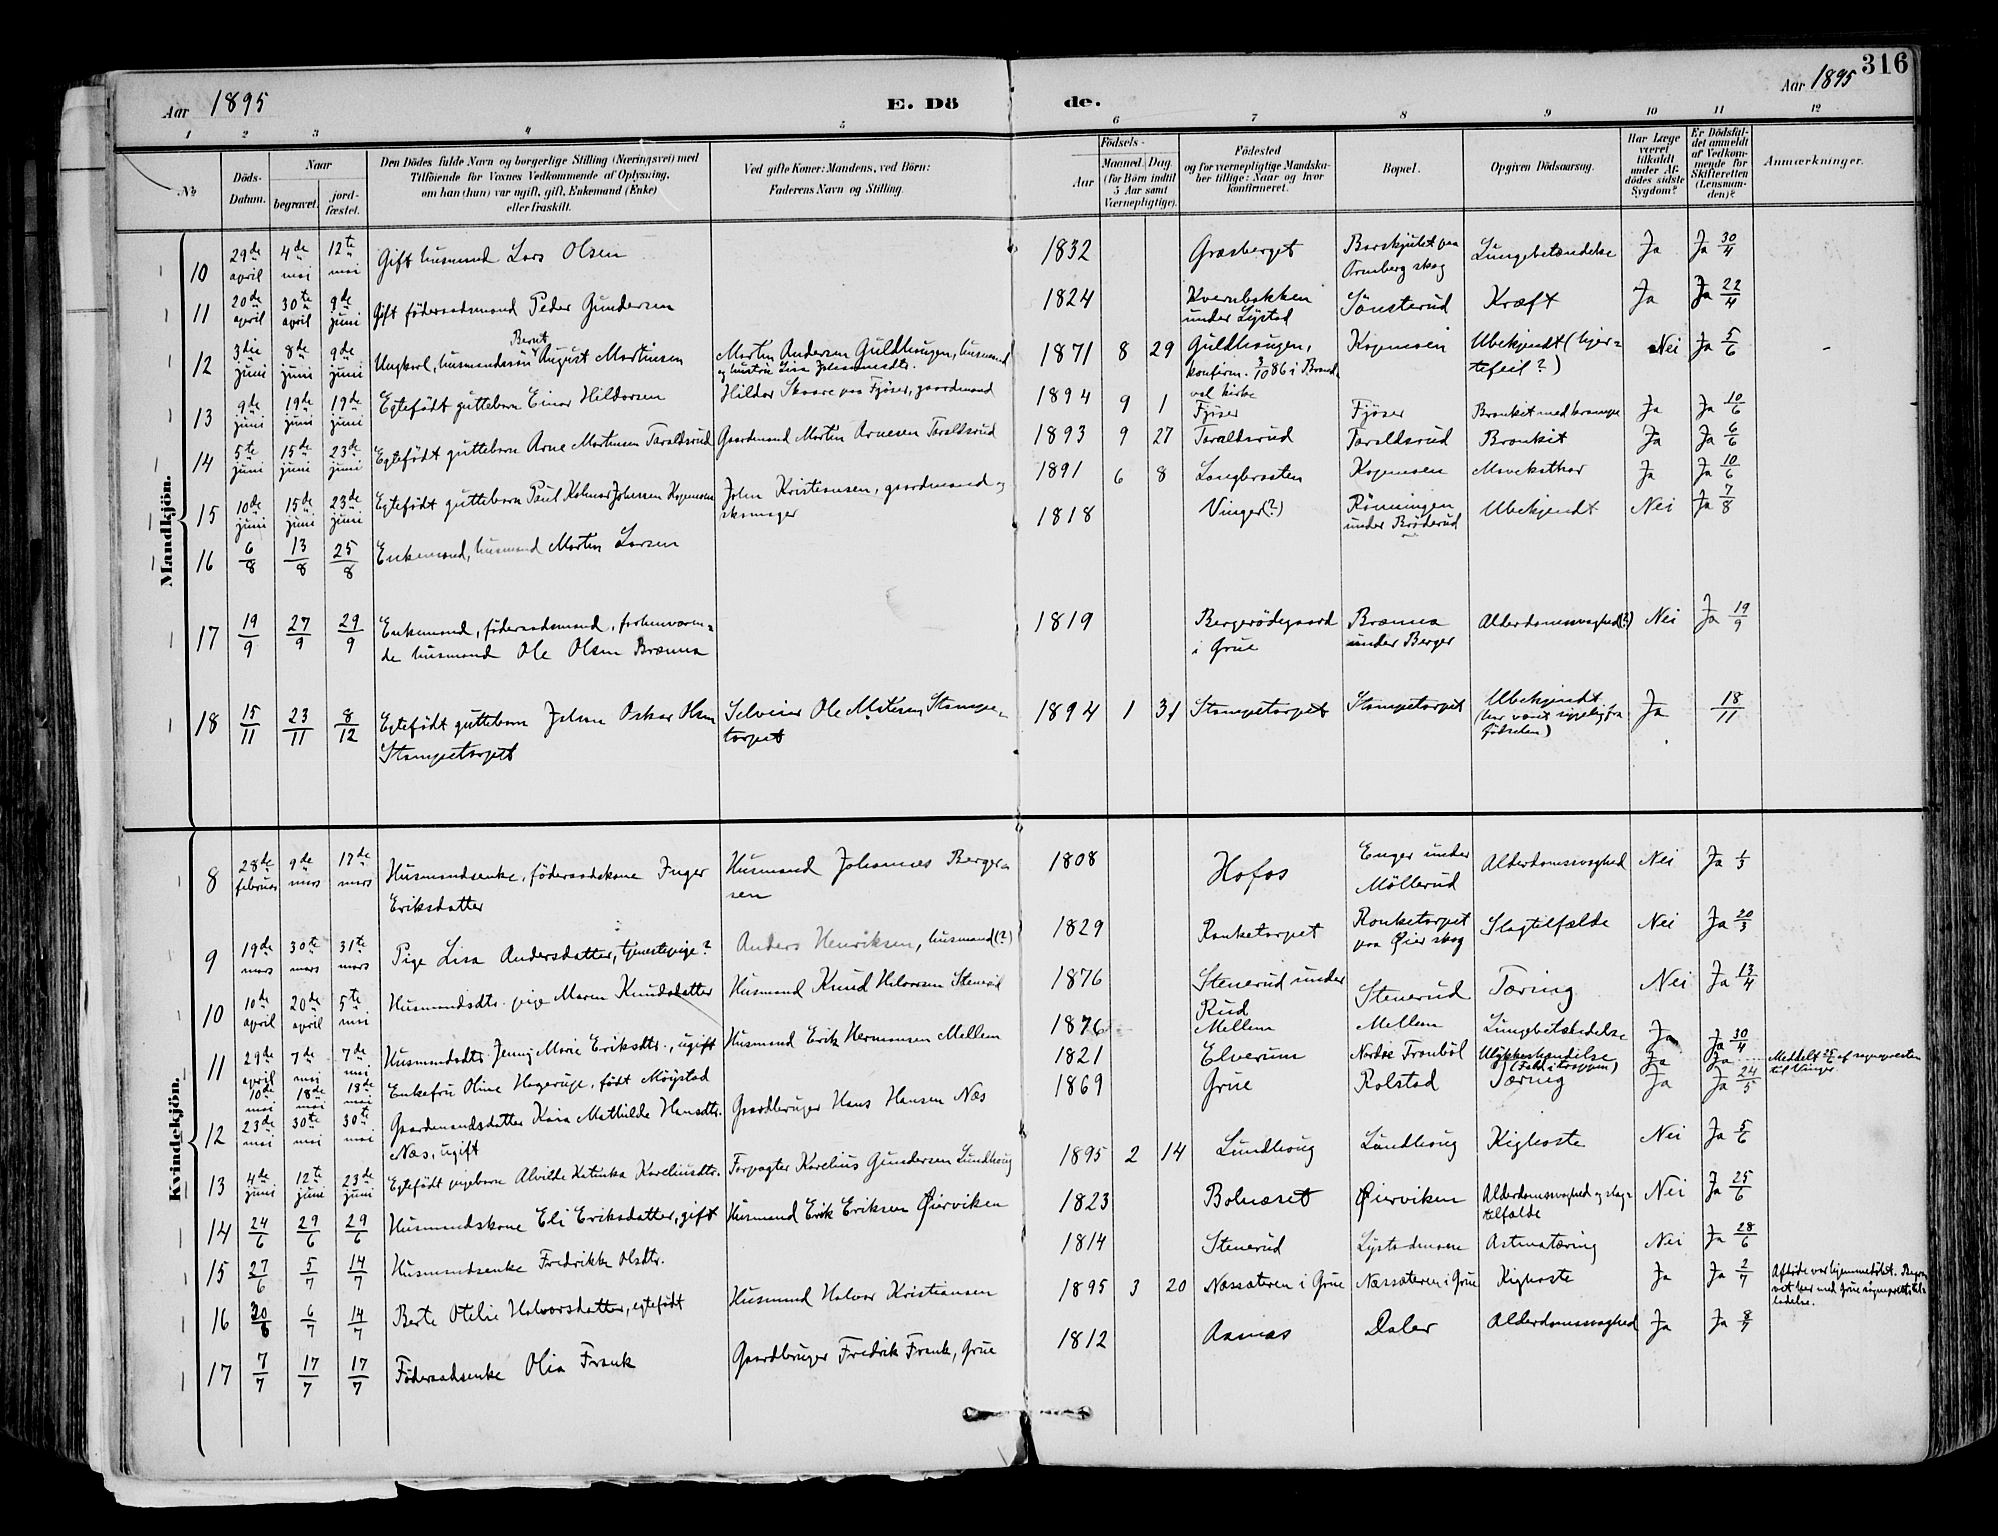 316
Aar 1895 E. Dö de. Aar 1895
1 2 3 4 5 6 7 8 9 10 11 12
No.
Döds-Datum.
Naar begravet. jordfæstet.
Den Dödes fulde Navn og borgerlige Stilling (Næringsvei) med
Tilföiende for Voxnes Vedkommende af Oplysning,
om han (hun) var ugift, gift, Enkemand (Enke)
eller fraskilt.
Ved gifte Koner: Mandens, ved Börn:
Faderens Navn og Stilling.
Födsels-
Aar Maaned. Dag.
(for Börn indtil
5 Aar samt
Værnepligtige).
Födested
og for værnepligtige Mandskaber tillige: Naar og hvor
konfirmeret.
Bopæl.
Opgiven Dödsaarsag.
Har Læge været tilkaldt under Afdödes sidste Sygdom?
Er Dödsfaldet anmeldt af Vedkommende for Skifteretten (Lensmanden)?
Anmærkninger.
Mandkjön.
10 29de april 4de mai 12te mai Gift husmand Lars Olsen 1832 Græsberget Barskjulet paa Ornberg skog Lungebetændelse Ja Ja 30/4
11 20de april 30te april 9de juni Gift föderaadsmand Peder Gundersen 1824 Kvernbakken under Lystad Sönsterud Kræft Ja Ja 22/4
12 3die juni 8de juni 9de juni Ungkarl, husmandssön Bernt August Martinsen Martin Andersen Guldhaugen, husmand og hustru Lisa Johannesdtr. 1871 8 29 Guldhaugen, konfirm. 3/10 86 i Brandval kirke Kopmoen Ubekjendt (hjertefeil?) Nei Ja 5/6
13 9de juni 19de juni 19de juni Egtefödt guttebarn Einar Hildorsen Hildor Skaare paa Fjöser, gaardmand 1894 9 1 Fjöser Fjöser Bronkit med krampe Ja Ja 10/6
14 5te juni 15de juni 23de juni Egtefödt guttebarn Arne Martinsen Taraldsrud Gaardmand Martin Arnesen Taraldsrud 1893 9 27 Taraldsrud Taraldsrud Bronkit Ja Ja 6/6
15 10de juni 15de juni 23de juni Egtefödt guttebarn Paul Kolmar Johnsen Kopmoen John Kristiansen, gaardmand og skomager 1891 6 8 Langbraaten Kopmoen Ja Ja 10/6
16 6/8 13/8 25/8 Enkemand, husmand Martin Larsen 1818 Vinger (?) Rönningen under Bröderud Ubekjendt Nei Ja 7/8
17 19/9 27/9 29/9 Enkemand, föderaadsmand, forhenværende husmand Ole Olsen Brænna 1819 Bergerödegaard i Grue Brænna under Berger Alderdomssvaghed (?) Nei Ja 19/9
18 15/11 23/11 8/12 Egtefödt guttebarn Johan Oskar Olsen Stampetorpet Selveier Ole Matisen Stampetorpet 1894 1 31 Stampetorpet Stampetorpet Ubekjendt (har været sygelig fra födselen) Ja 18/11
Kvindekjön.
8 28de februar 9de mars 17de mars Husmandsenke, föderaadskone Inger Eriksdatter Husmand Johannes Bergersen 1808 Hofos Enger under Möllerud Alderdomssvaghed Nei Ja 1/3
9 19de mars 30te mars 31te mars Pige Lisa Andersdatter, tjenestepige? Anders Henriksen, husmand (?) 1829 Ronketorpet Ronketorpet paa Øier skog Slagtilfælde Nei Ja 20/3
10 10de april 20de april 5te mai Husmandsdtr. pige Maren Knudsdatter Husmand Knud Halvorsen Stenerud 1876 Stenerud under Rud Stenerud Tæring Nei Ja 13/4
11 29de april 7de mai 7de mai Husmandsdtr. Jenny Marie Eriksdtr., ugift Husmand Erik Hermansen Mellem 1876 Mellem Mellem Lungebetændelse Ja Ja 30/4
10de mai 18de mai 18de mai Enkefru Oline Hagerup, födt Möystad 1821 Elverum Nordre Tronböl Ulykkeshændelse (Fald i trappen) Ja Ja ... Meddelt 25/5 af sogneprest til Vinger.
12 23de mai 30te mai 30te mai Gaardmandsdatter Kaia Mathilde Hansdtr. Næs, ugift Gaardbruger Hans Hansen Næs 1869 Grue Rolstad Tæring Ja Ja 24/5
13 4de juni 12te juni 23de juni Egtefödt pigebarn Alvilde Katinka Kareliusdtr. Forpagter Karelius Gundersen Lundhoug 1895 2 14 Lundhoug Lundhoug Kighoste Nei Ja 5/6
14 24/6 29/6 29/6 Husmandskone Eli Eriksdatter, gift Husmand Erik Eriksen Øierviken 1823 Bolnæset Øierviken Alderdomssvaghed og slagtilfælde Nei Ja 25/6
15 27/6 5/7 14/7 Husmandsenke Fredrikke Olsdtr. 1814 Stenerud Lystadmoen Astmatæring Nei Ja 28/6
16 30/6 6/7 14/7 Berte Otelie Halvorsdatter, egtefödt Husmand Halvor Kristiansen 1895 3 20 Næssæteren i Grue Næssæteren i Grue Kighoste Ja Ja 2/7 Afdöde var hjemmedöbt. Begravet her med Grue sogneprests tilladelse.
17 7/7 17/7 17/7 Föderaadsenke Olia Frank Gaardbruger Fredrik Frank, Grue 1812 Aasnæs Daler Alderdomssvaghed Ja Ja 8/7